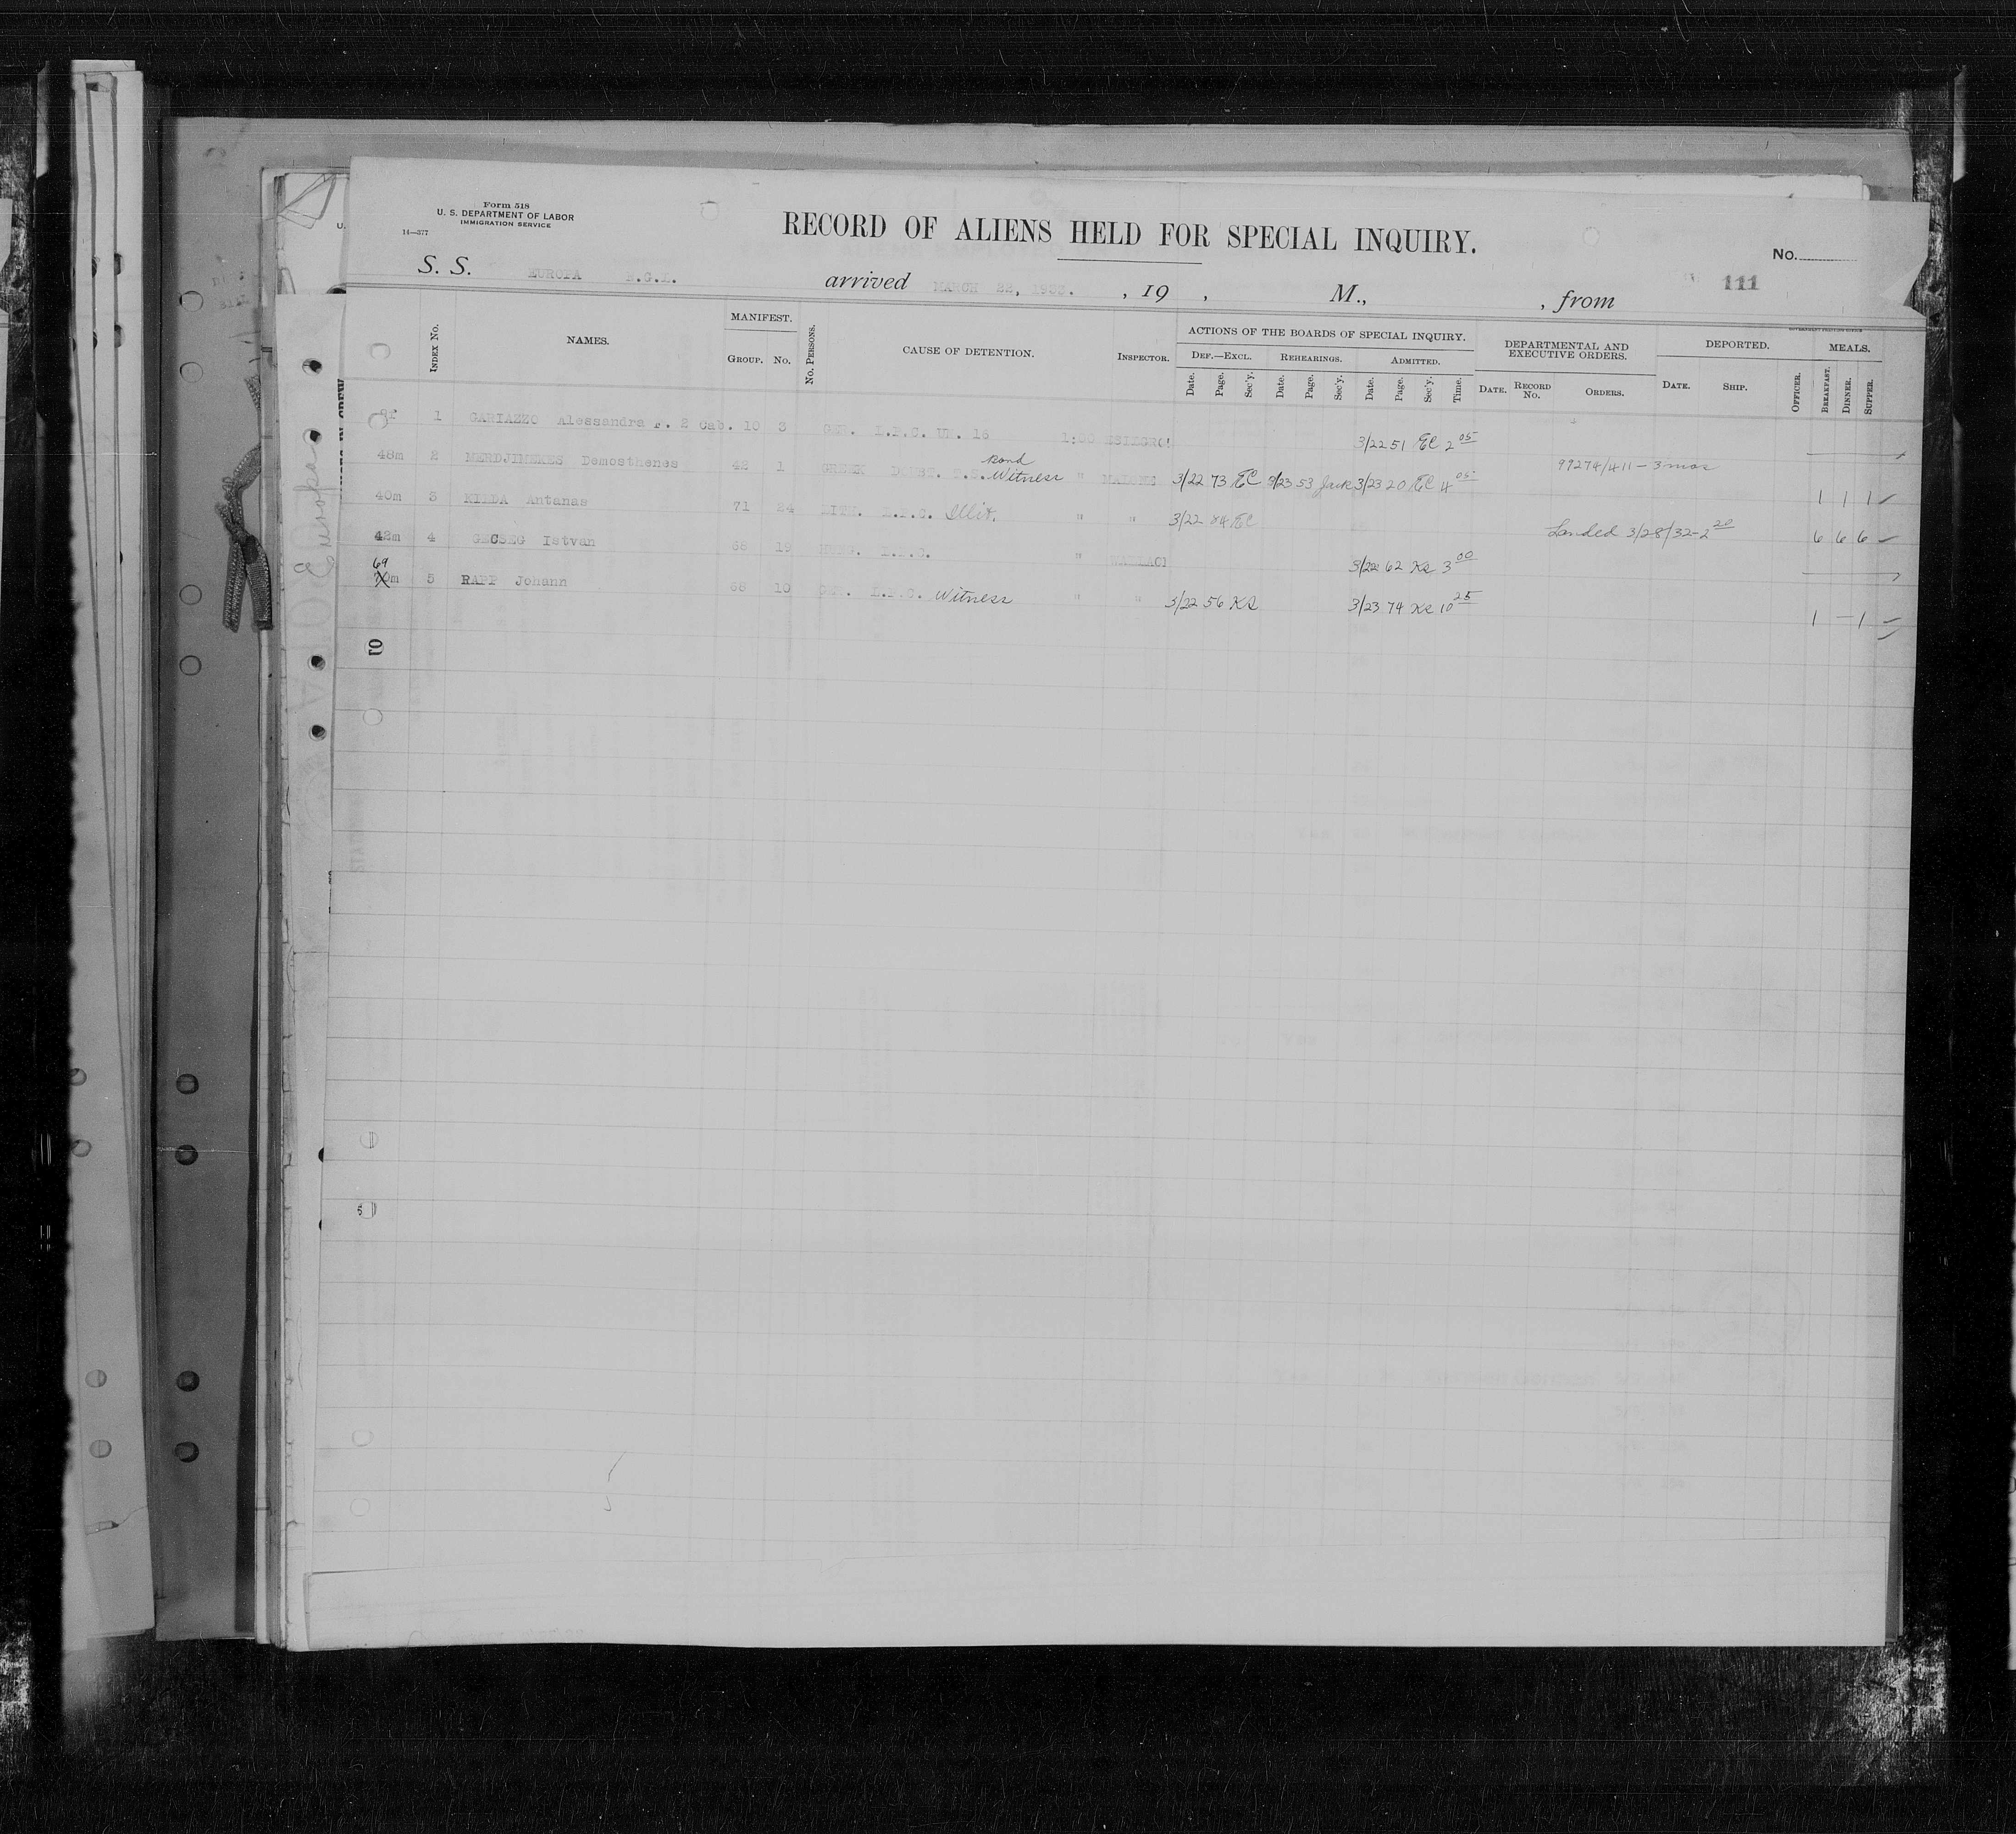 Form 518
U. S. DEPARTMENT OF LABOR
IMMIGRATION SERVICE
14—377
RECORD OF ALIENS HELD FOR SPECIAL INQUIRY.
No.
111
S. S. EUROPA N.G.L. arrived MARCH 22, , 19 , M., , from
GOVERNMENT PRINTING OFFICE
INDEX No. NAMES. MANIFEST. GROUP. No. No. PERSONS. CAUSE OF DETENTION. INSPECTOR. ACTIONS OF THE BOARDS OF SPECIAL INQUIRY. DEPARTMENTAL AND EXECUTIVE ORDERS. DEPORTED. MEALS.
DEF.—EXCL. REHEARINGS. ADMITTED.
Date. Page. Sec'y. Date. Page. Sec'y. Date. Page. Sec'y. Time. DATE. RECORD No. ORDERS. DATE. SHIP. OFFICER. BREAKFAST. DINNER. SUPPER.
9f 1 GARIAZZO Alessandra F. 2 Cab. 10 3 GER. L.P.C. UN. 16 1:00 3/22 51 EC 2 05
48m 2 MERDJIMEKES Demosthenes 42 1 GREEK DOUBT. Bond Witness " MALONE 3/22 73 EC 3/23 53 Jack 3/23 20 EC 4 05 99274/411 - 3 mos 1 1 1
40m 3 Antanas 71 24 LITH. L.P.C. Illit. " " 3/22 84 EC Landed 3/28/32-2 20 6 6 6
42m 4 GECSEG Istvan 68 19 L.P.C. " 3/22 62 KR 3 00
69 70m 5 RAPP Johann 68 10 GER. L.P.C. Witness " " 3/22 56 KR 3/23 74 KR 10 25 1 — 1
Europa